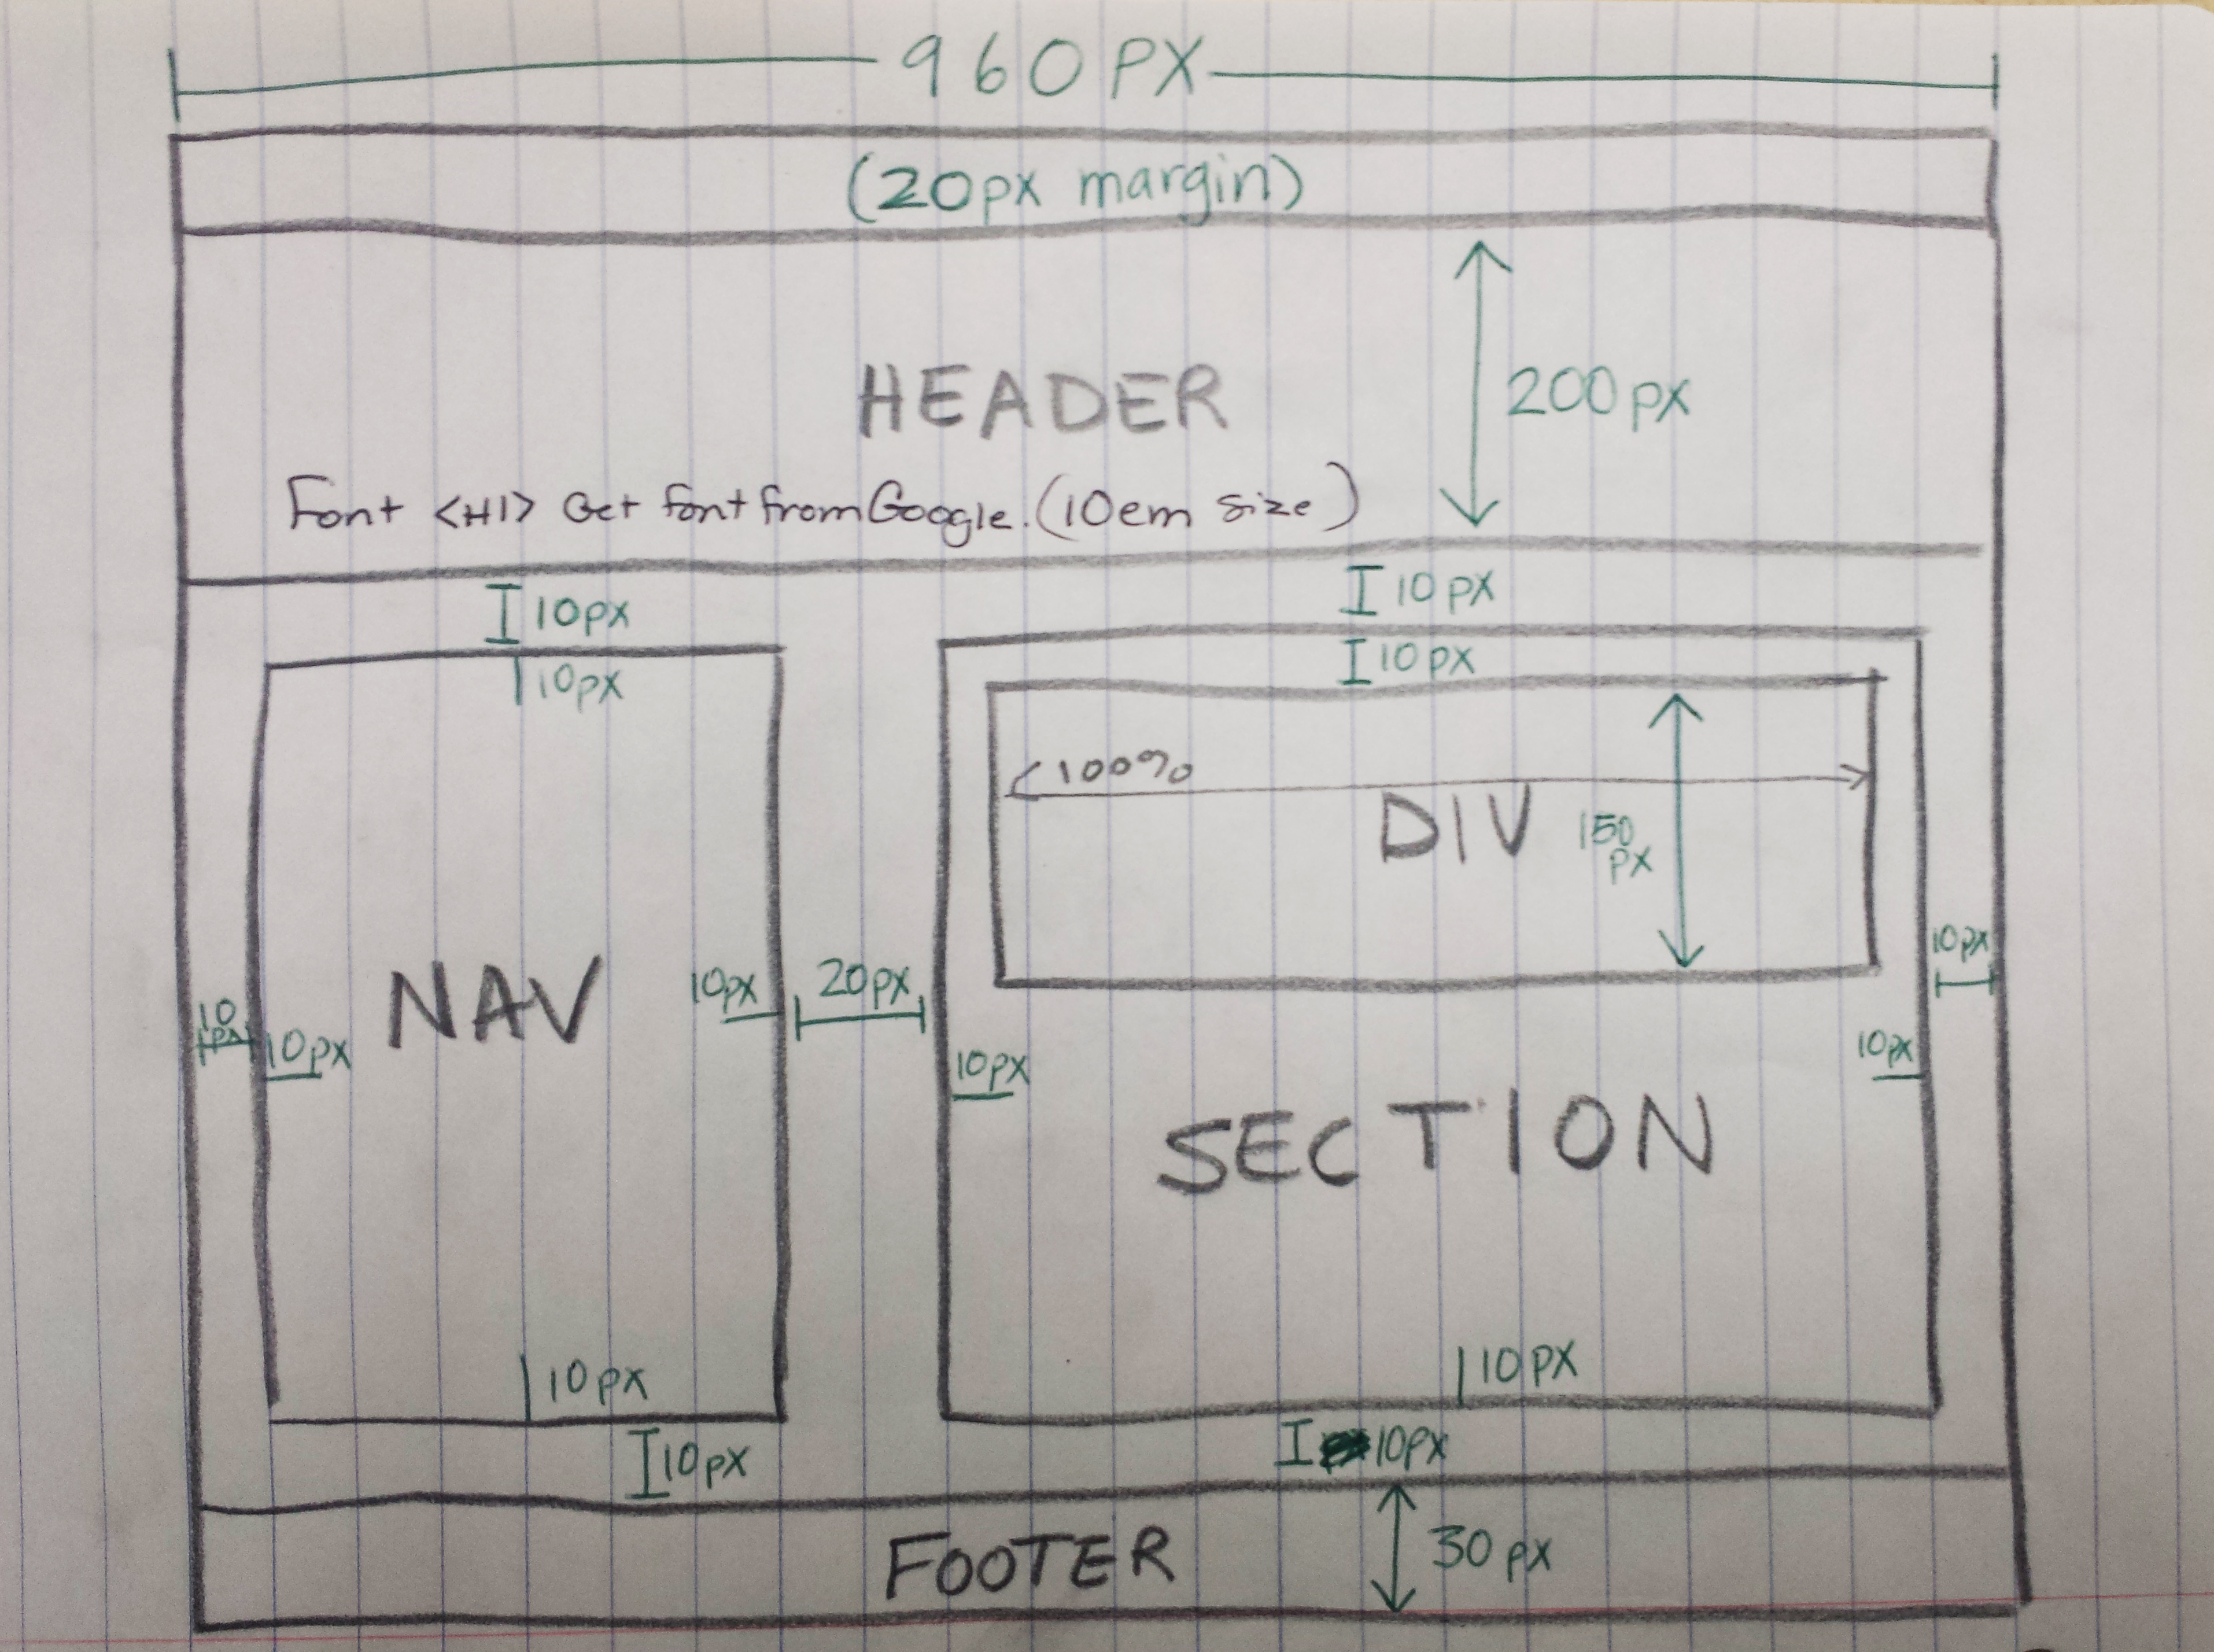 960PX
(20px margin)
HEADER
200px
Font <H1> Get font from Google. (10em size)
10px
10px
10px
10px
100%
DIV
150
px
NAV
10px
20px
10px
10
px
10px
10px
10px
SECTION
10px
10px
10px
10px
FOOTER
30px